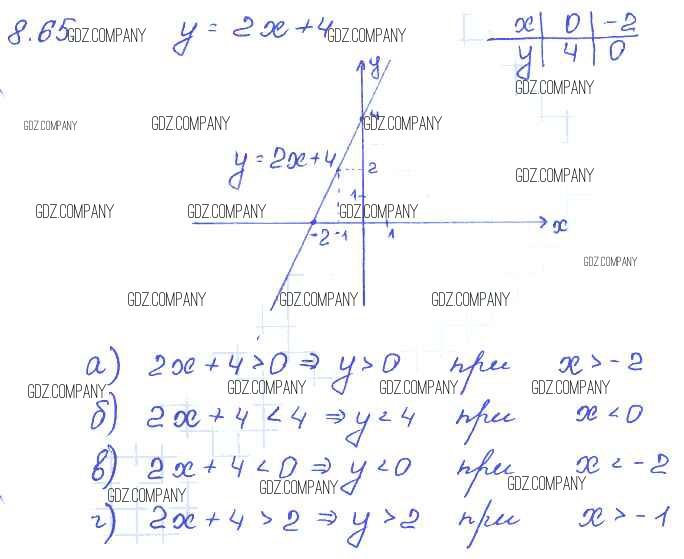 8.65 GDZ.COMPANY y = 2x + 4 GDZ.COMPANY
x | 0 | -2
y | 4 | 0
GDZ.COMPANY
y
4
GDZ.COMPANY GDZ.COMPANY GDZ.COMPANY
y = 2x + 4
2
GDZ.COMPANY
1
GDZ.COMPANY GDZ.COMPANY GDZ.COMPANY
-2 -1 1 x
GDZ.COMPANY
GDZ.COMPANY GDZ.COMPANY GDZ.COMPANY
а) 2x + 4 > 0 ⇒ y > 0 при x > -2
GDZ.COMPANY GDZ.COMPANY GDZ.COMPANY GDZ.COMPANY
б) 2x + 4 < 4 ⇒ y < 4 при x < 0
в) 2x + 4 < 0 ⇒ y < 0 при x < -2
GDZ.COMPANY GDZ.COMPANY GDZ.COMPANY
г) 2x + 4 > 2 ⇒ y > 2 при x > -1